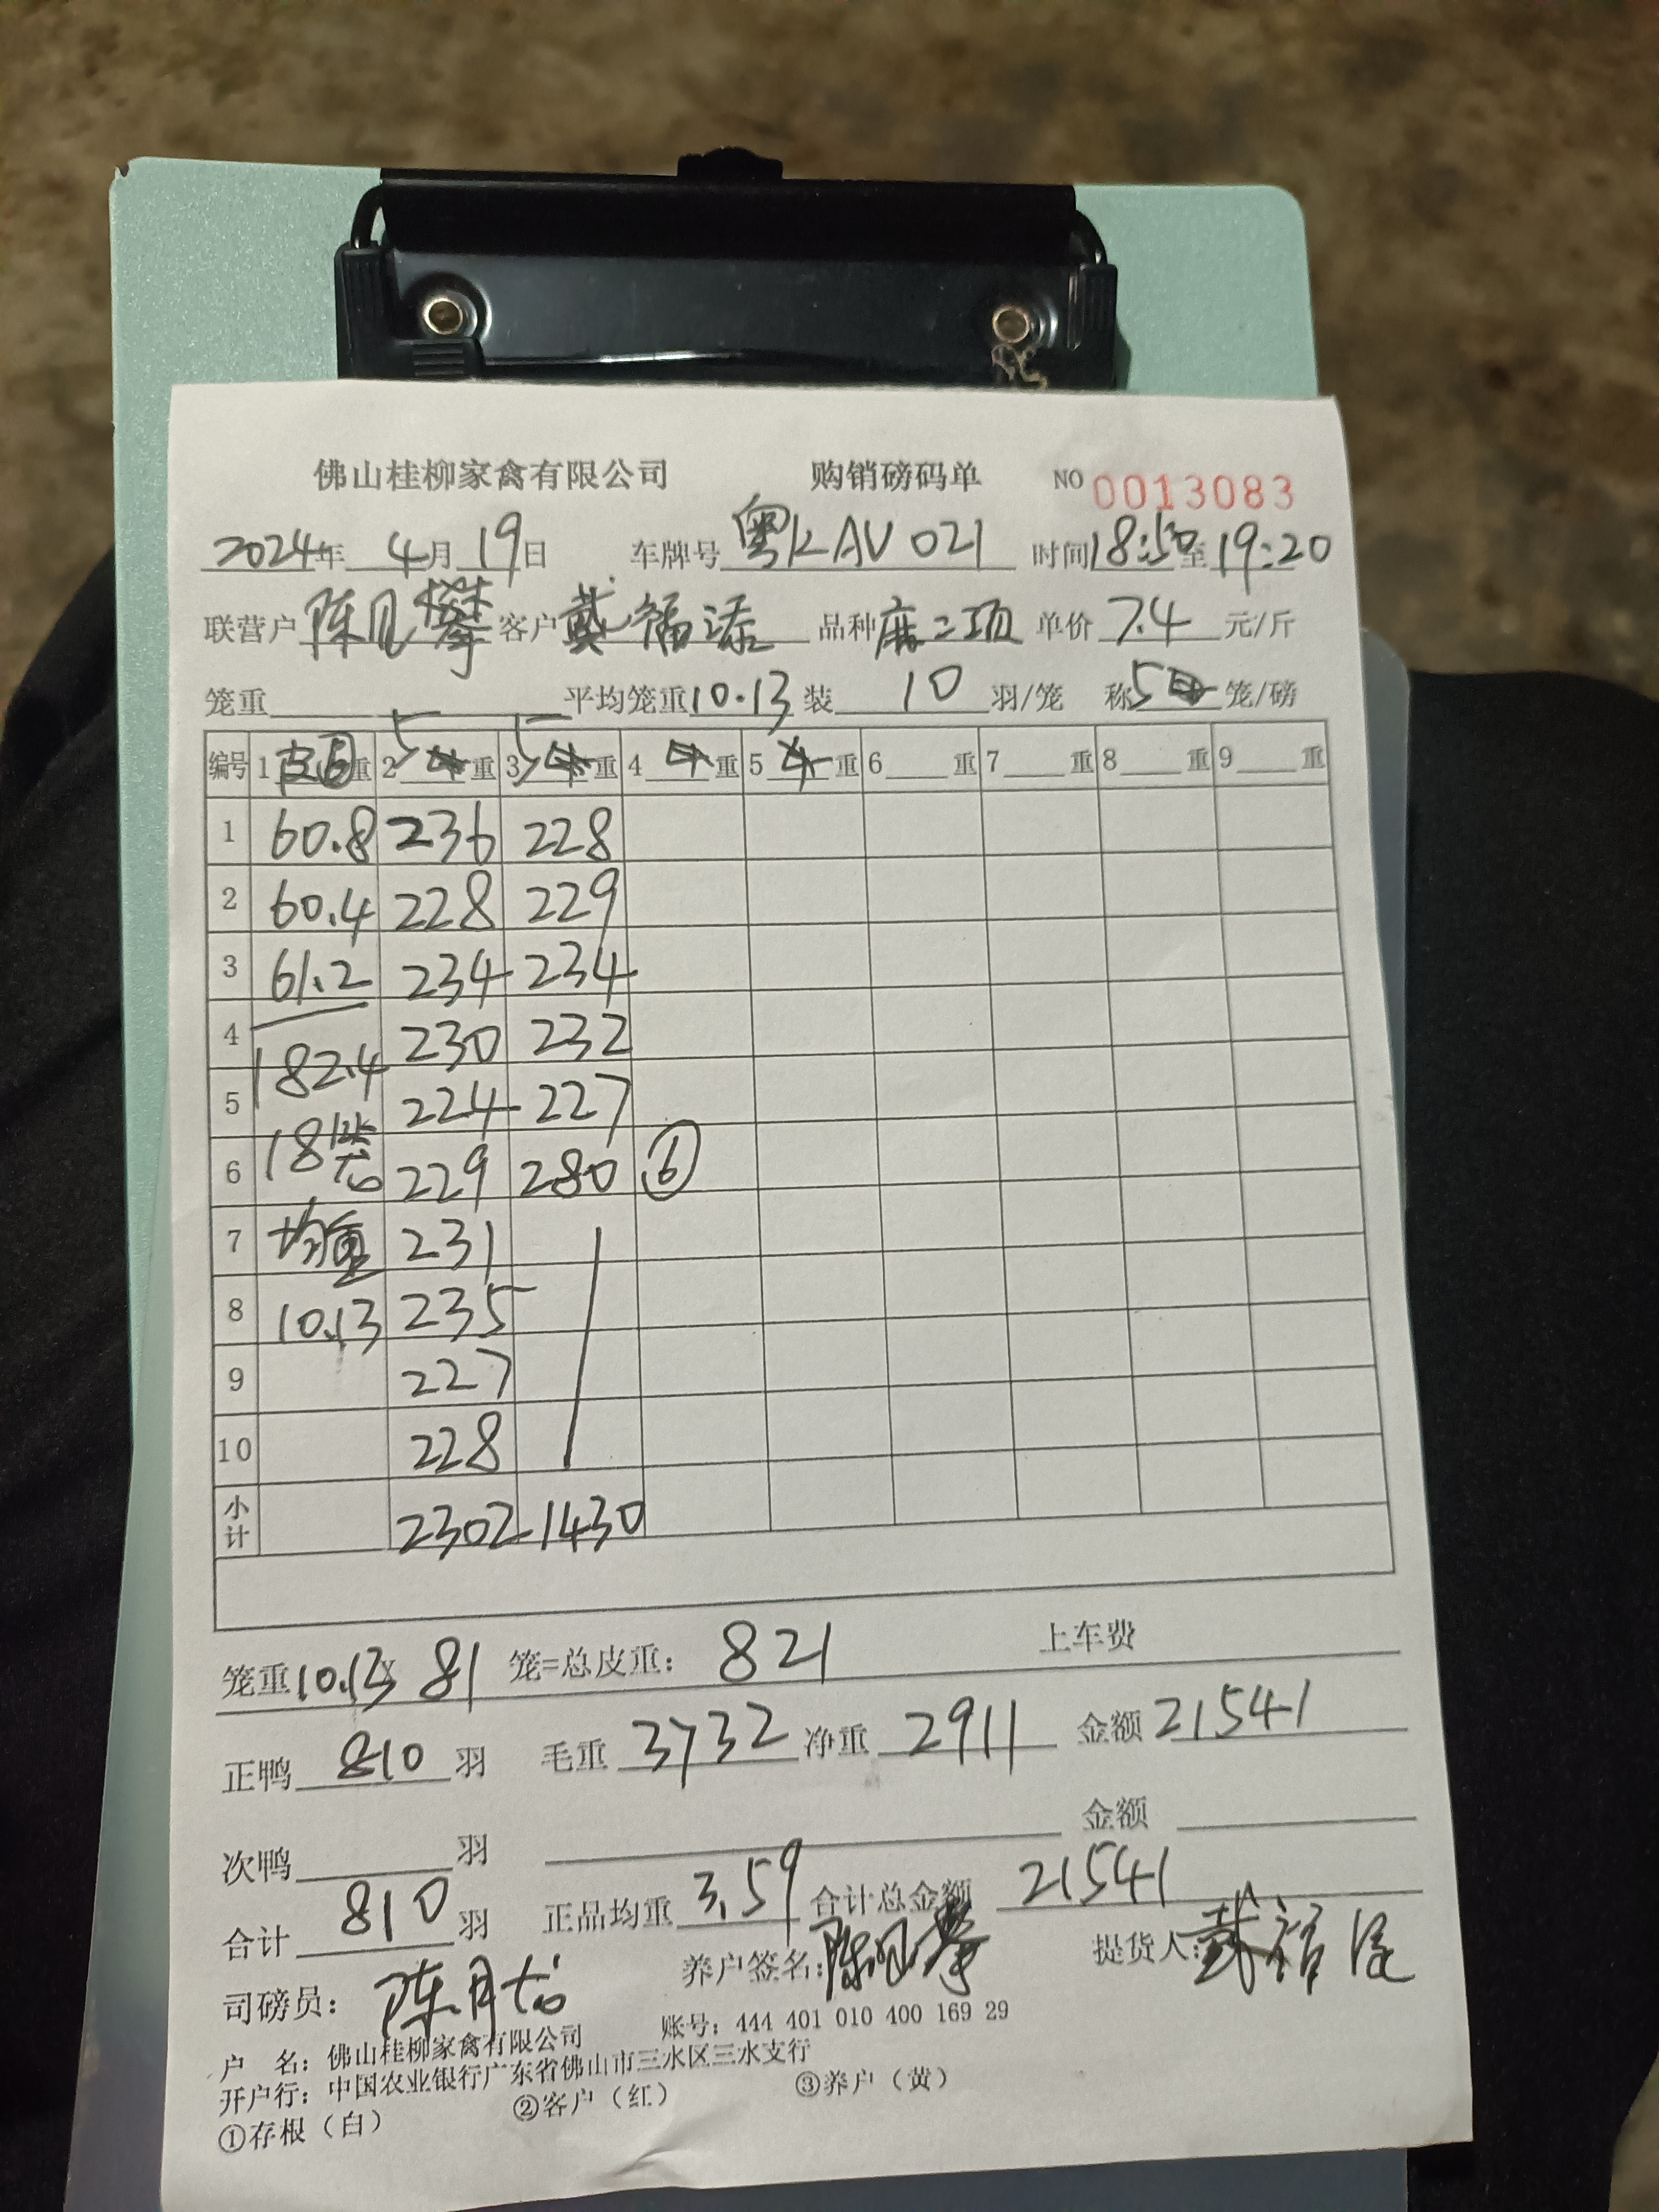 佛山桂柳家禽有限公司 购销磅码单 NO 0013083
2024年 4月 19日 车牌号 粤KAV021 时间18:50至19:20
联营户 陈月攀 客户 戴福添 品种 麻二项 单价 7.4 元/斤
笼重 平均笼重10.13 装 10 羽/笼 称5 笼/磅
编号 1 皮⑥重 2 5 重 3 5 重 4 重 5 重 6 重 7 重 8 重 9 重
1 60.8 236 228
2 60.4 228 229
3 61.2 234 234
4 182.4 230 232
5 224 227
6 18笼 229 280 ⑥
7 均重 231
8 10.13 235
9 227
10 228
小计 2302 1430
笼重10.13× 81 笼=总皮重: 821 上车费
正鸭 810 羽 毛重 3732 净重 2911 金额 21541
次鸭 羽 金额
合计 810 羽 正品均重 3.59 合计总金额 21541
司磅员: 陈月 养户签名: 陈月攀 提货人: 戴福添
户 名: 佛山桂柳家禽有限公司 账号: 444 401 010 400 169 29
开户行: 中国农业银行广东省佛山市三水区三水支行
①存根(白) ②客户(红) ③养户(黄)